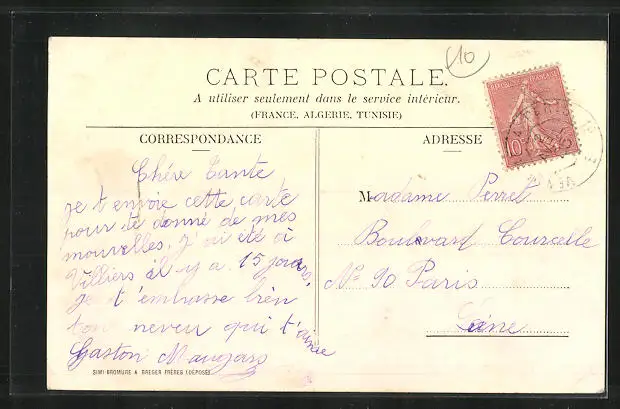 10
CARTE POSTALE.
A utiliser seulement dans le service intérieur.
(FRANCE, ALGERIE, TUNISIE)
CORRESPONDANCE
Chére Tante
je t'envoie cette carte
pour te donné de mes
nouvelles, j'ai été à
Villiers il y a 15 jours,
je t'embrasse bien
ton neveu qui t'aime
Gaston
SIMI-BROMURE A. BREGER FRÈRES (DÉPOSÉ)
ADRESSE
REPUBLIQUE FRANÇAISE
10
Madame Perret
Boulevard Courcelle
Nº 90 Paris
Seine